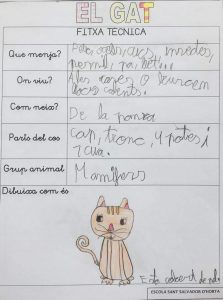 EL GAT
FITXA TÈCNICA
Que menja?
insectes,
pernil,
On viu?
A les cases o
llocs calents.
Com neix?
De la panxa
Parts del cos
cap, tronc, 4 potes i
1 cua.
Grup animal
Mamífers
Dibuixa com és
ESCOLA SANT SALVADOR D'HORTA